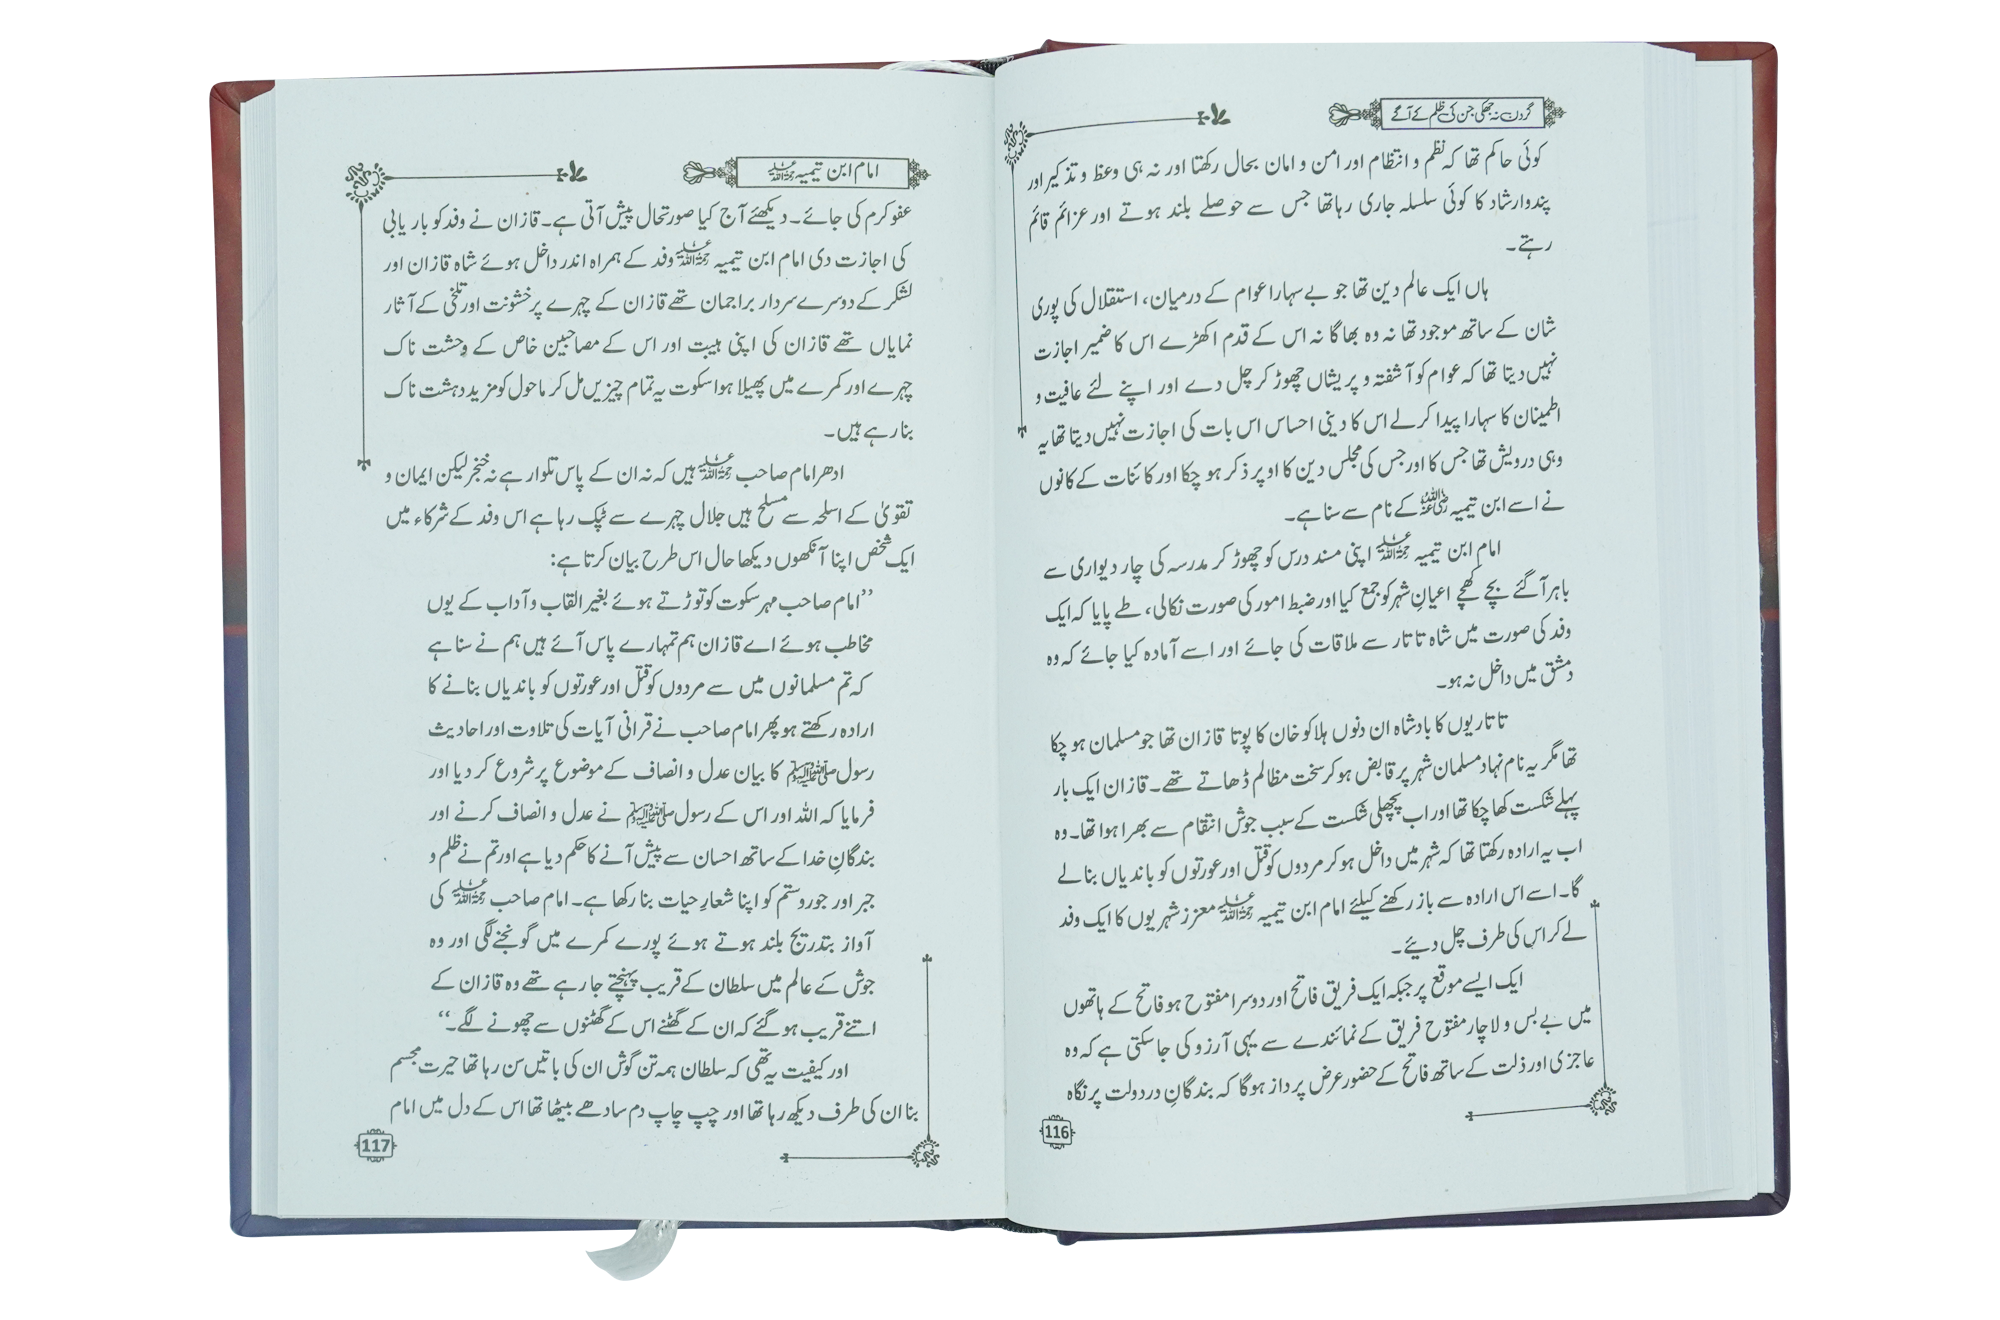 گردن نہ جھکی جن کی ظلم کے آگے
کوئی حاکم تھا کہ نظم و انتظام اور امن و امان بحال رکھتا اور نہ ہی وعظ و تذکیر اور
پندوارشاد کا کوئی سلسلہ جاری رہاتھا جس سے حوصلے بلند ہوتے اور عزائم قائم
رہتے۔
ہاں ایک عالم دین تھا جو بے سہارا عوام کے درمیان، استقلال کی پوری
شان کے ساتھ موجود تھا نہ وہ بھاگا نہ اس کے قدم اکھڑے اس کا ضمیر اجازت
نہیں دیتا تھا کہ عوام کو آشفتہ و پریشاں چھوڑ کر چل دے اور اپنے لئے عافیت و
اطمینان کا سہارا پیدا کرلے اس کا دینی احساس اس بات کی اجازت نہیں دیتا تھا یہ
وہی درویش تھا جس کا اور جس کی مجلس دین کا اوپر ذکر ہو چکا اور کائنات کے کانوں
نے اسے ابن تیمیہ رضی اللہ عنہ کے نام سے سنا ہے۔
امام ابن تیمیہ رحمۃ اللہ علیہ اپنی مسند درس کو چھوڑ کر مدرسہ کی چار دیواری سے
باہر آگئے بچے کھچے اعیانِ شہر کو جمع کیا اور ضبط امور کی صورت نکالی، طے پایا کہ ایک
وفد کی صورت میں شاہ تاتار سے ملاقات کی جائے اور اسے آمادہ کیا جائے کہ وہ
دمشق میں داخل نہ ہو۔
تاتاریوں کا بادشاہ ان دنوں ہلاکو خان کا پوتا قازان تھا جو مسلمان ہو چکا
تھا مگر یہ نام نہاد مسلمان شہر پر قابض ہو کر سخت مظالم ڈھاتے تھے۔ قازان ایک بار
پہلے شکست کھا چکا تھا اور اب پچھلی شکست کے سبب جوش انتقام سے بھرا ہوا تھا۔ وہ
اب یہ ارادہ رکھتا تھا کہ شہر میں داخل ہو کر مردوں کو قتل اور عورتوں کو باندیاں بنالے
گا۔ اسے اس ارادہ سے باز رکھنے کیلئے امام ابن تیمیہ رحمۃ اللہ علیہ معزز شہریوں کا ایک وفد
لے کر اس کی طرف چل دیئے۔
ایک ایسے موقع پر جبکہ ایک فریق فاتح اور دوسرا مفتوح ہو فاتح کے ہاتھوں
میں بے بس و لاچار مفتوح فریق کے نمائندے سے یہی آرزو کی جا سکتی ہے کہ وہ
عاجزی اور ذلت کے ساتھ فاتح کے حضور عرض پرداز ہوگا کہ بندگانِ در دولت پر نگاہ
116
امام ابن تیمیہ رحمۃ اللہ علیہ
عفو کرم کی جائے۔ دیکھئے آج کیا صورتحال پیش آتی ہے۔ قازان نے وفد کو باریابی
کی اجازت دی امام ابن تیمیہ رحمۃ اللہ علیہ وفد کے ہمراہ اندر داخل ہوئے شاہ قازان اور
لشکر کے دوسرے سردار براجمان تھے قازان کے چہرے پر خشونت اور تلخی کے آثار
نمایاں تھے قازان کی اپنی ہیبت اور اس کے مصاحبین خاص کے وحشت ناک
چہرے اور کمرے میں پھیلا ہوا سکوت یہ تمام چیزیں مل کر ماحول کو مزید دہشت ناک
بنارہے ہیں۔
ادھر امام صاحب رحمۃ اللہ علیہ ہیں کہ نہ ان کے پاس تلوار ہے نہ خنجر لیکن ایمان و
تقویٰ کے اسلحہ سے مسلح ہیں جلال چہرے سے ٹپک رہا ہے اس وفد کے شرکاء میں
ایک شخص اپنا آنکھوں دیکھا حال اس طرح بیان کرتا ہے:
”امام صاحب مہر سکوت کو توڑتے ہوئے بغیر القاب و آداب کے یوں
مخاطب ہوئے اے قازان ہم تمہارے پاس آئے ہیں ہم نے سنا ہے
کہ تم مسلمانوں میں سے مردوں کو قتل اور عورتوں کو باندیاں بنانے کا
ارادہ رکھتے ہو پھر امام صاحب نے قرانی آیات کی تلاوت اور احادیث
رسول صلی اللہ علیہ وسلم کا بیان عدل و انصاف کے موضوع پر شروع کر دیا اور
فرمایا کہ اللہ اور اس کے رسول صلی اللہ علیہ وسلم نے عدل و انصاف کرنے اور
بندگانِ خدا کے ساتھ احسان سے پیش آنے کا حکم دیا ہے اور تم نے ظلم و
جبر اور جور و ستم کو اپنا شعارِ حیات بنا رکھا ہے۔ امام صاحب رحمۃ اللہ علیہ کی
آواز بتدریج بلند ہوتے ہوئے پورے کمرے میں گونجنے لگی اور وہ
جوش کے عالم میں سلطان کے قریب پہنچتے جا رہے تھے وہ قازان کے
اتنے قریب ہو گئے کہ ان کے گھٹنے اس کے گھٹنوں سے چھونے لگے۔“
اور کیفیت یہ تھی کہ سلطان ہمہ تن گوش ان کی باتیں سن رہا تھا حیرت مجسم
بنا ان کی طرف دیکھ رہا تھا اور چپ چاپ دم سادھے بیٹھا تھا اس کے دل میں امام
117